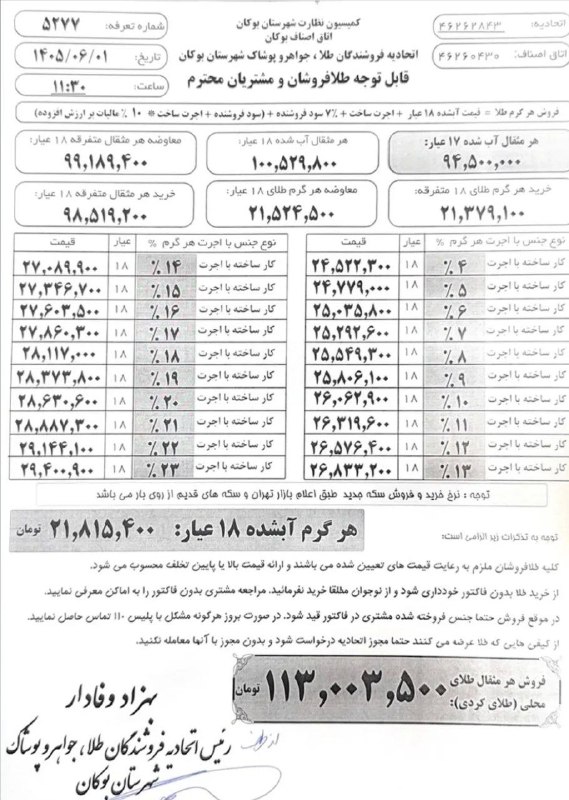 کمیسیون نظارت شهرستان بوکان
اتاق اصناف بوکان
اتحادیه فروشندگان طلا، جواهر و پوشاک شهرستان بوکان
قابل توجه طلافروشان و مشتریان محترم
اتحادیه: ۴۶۲۶۲۸۴۳
اتاق اصناف: ۴۶۲۶۰۴۳۰
شماره تعرفه: ۵۲۷۷
تاریخ: ۱۴۰۵/۰۶/۰۱
ساعت: ۱۱:۳۰
فروش هر گرم طلا = قیمت آبشده ۱۸ عیار + اجرت ساخت + ۷٪ سود فروشنده + (سود فروشنده + اجرت ساخت * ۱۰ ٪ مالیات بر ارزش افزوده)
هر مثقال آب شده ۱۷ عیار: ۹۴,۵۰۰,۰۰۰
هر مثقال آب شده ۱۸ عیار: ۱۰۰,۵۲۹,۸۰۰
معاوضه هر مثقال متفرقه ۱۸ عیار: ۹۹,۱۸۹,۴۰۰
خرید هر گرم طلای ۱۸ متفرقه: ۲۱,۳۷۹,۱۰۰
معاوضه هر گرم طلای ۱۸ عیار: ۲۱,۵۲۴,۵۰۰
خرید هر مثقال متفرقه ۱۸ عیار: ۹۸,۵۱۹,۲۰۰
نوع جنس با اجرت هر گرم % عیار قیمت
کار ساخته با اجرت ۴٪ ۱۸ ۲۴,۵۲۲,۳۰۰
کار ساخته با اجرت ۵٪ ۱۸ ۲۴,۷۷۹,۰۰۰
کار ساخته با اجرت ۶٪ ۱۸ ۲۵,۰۳۵,۸۰۰
کار ساخته با اجرت ۷٪ ۱۸ ۲۵,۲۹۲,۶۰۰
کار ساخته با اجرت ۸٪ ۱۸ ۲۵,۵۴۹,۳۰۰
کار ساخته با اجرت ۹٪ ۱۸ ۲۵,۸۰۶,۱۰۰
کار ساخته با اجرت ۱۰٪ ۱۸ ۲۶,۰۶۲,۹۰۰
کار ساخته با اجرت ۱۱٪ ۱۸ ۲۶,۳۱۹,۶۰۰
کار ساخته با اجرت ۱۲٪ ۱۸ ۲۶,۵۷۶,۴۰۰
کار ساخته با اجرت ۱۳٪ ۱۸ ۲۶,۸۳۳,۲۰۰
نوع جنس با اجرت هر گرم % عیار قیمت
کار ساخته با اجرت ۱۴٪ ۱۸ ۲۷,۰۸۹,۹۰۰
کار ساخته با اجرت ۱۵٪ ۱۸ ۲۷,۳۴۶,۷۰۰
کار ساخته با اجرت ۱۶٪ ۱۸ ۲۷,۶۰۳,۵۰۰
کار ساخته با اجرت ۱۷٪ ۱۸ ۲۷,۸۶۰,۳۰۰
کار ساخته با اجرت ۱۸٪ ۱۸ ۲۸,۱۱۷,۰۰۰
کار ساخته با اجرت ۱۹٪ ۱۸ ۲۸,۳۷۳,۸۰۰
کار ساخته با اجرت ۲۰٪ ۱۸ ۲۸,۶۳۰,۶۰۰
کار ساخته با اجرت ۲۱٪ ۱۸ ۲۸,۸۸۷,۳۰۰
کار ساخته با اجرت ۲۲٪ ۱۸ ۲۹,۱۴۴,۱۰۰
کار ساخته با اجرت ۲۳٪ ۱۸ ۲۹,۴۰۰,۹۰۰
توجه : نرخ خرید و فروش سکه جدید طبق اعلام بازار تهران و سکه های قدیم از روی بار می باشد
هر گرم آبشده ۱۸ عیار: ۲۱,۸۱۵,۴۰۰ تومان
توجه به تذکرات زیر الزامی است:
کلیه طلافروشان ملزم به رعایت قیمت های تعیین شده می باشند و ارائه قیمت بالا یا پایین تخلف محسوب می شود.
از خرید طلا بدون فاکتور خودداری شود و از نوجوان مطلقا خرید نفرمائید. مراجعه مشتری بدون فاکتور را به اماکن معرفی نمایید.
در موقع فروش حتما جنس فروخته شده مشتری در فاکتور قید شود. در صورت بروز هرگونه مشکل با پلیس ۱۱۰ تماس حاصل نمایید.
از کیفی هایی که طلا عرضه می کنند حتما مجوز اتحادیه درخواست شود و بدون مجوز با آنها معامله نکنید.
فروش هر مثقال طلای محلی (طلای کردی): ۱۱۳,۰۰۳,۵۰۰ تومان
بهزاد وفادار
رئیس اتحادیه فروشندگان طلا، جواهر و پوشاک
شهرستان بوکان